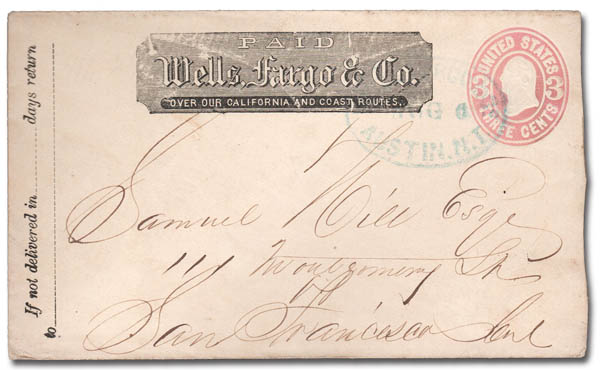 PAID
Wells, Fargo & Co.
OVER OUR CALIFORNIA AND COAST ROUTES.
UNITED STATES
3 3
THREE CENTS
AUG 6
AUSTIN. N.T.
If not delivered in days return
to
Samuel Hill Esqr
111 Montgomery St
San Francisco Cal